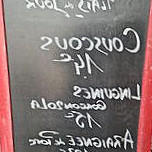 Plats du Jour
Couscous
14€
Linguines
Gorgonzola
15€
Araignée de Porc